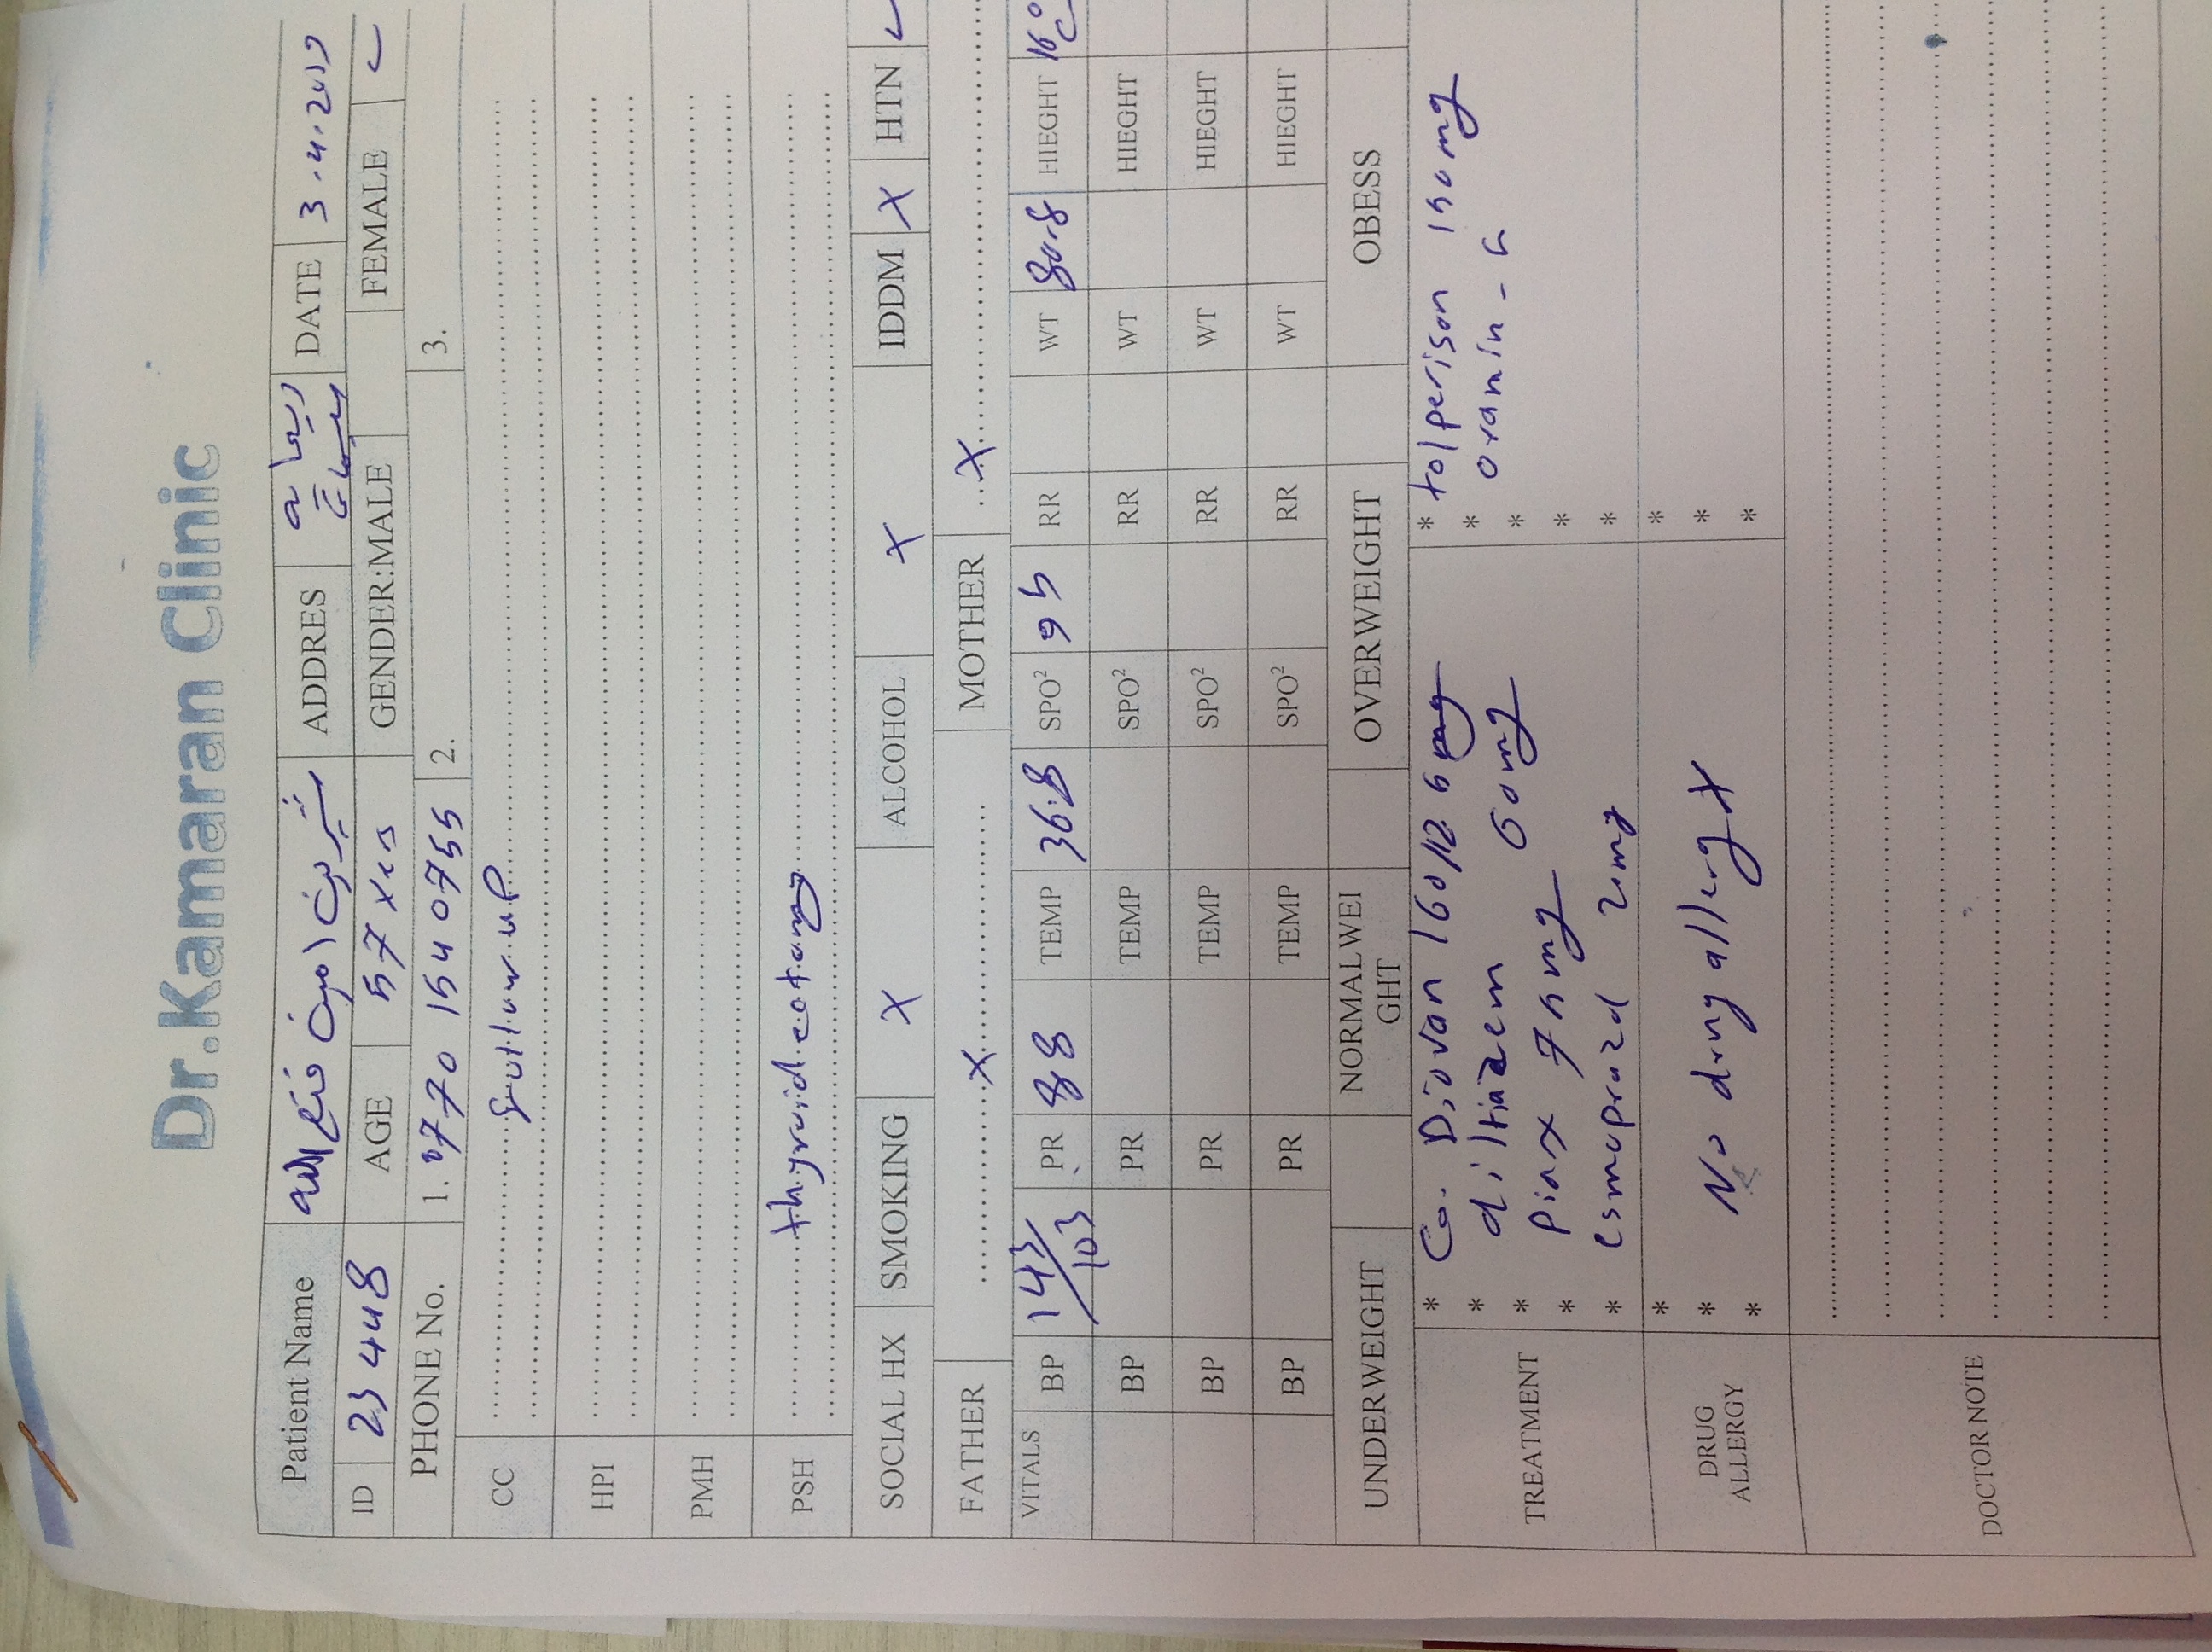 Dr.Kamaran Clinic
Patient Name شيرين امين فتح الله ADDRES DATE 3.4.2019
ID 23448 AGE 57 yrs GENDER:MALE FEMALE ✓
PHONE No. 1. 0770 154 0755 2. 3.
CC follow up
HPI
PMH
PSH thyroidectomy
SOCIAL HX SMOKING X ALCOHOL X IDDM X HTN ✓
FATHER X MOTHER X
VITALS BP 143/103 PR 88 TEMP 36.8 SPO² 95 RR WT 80.8 HIEGHT
BP PR TEMP SPO² RR WT HIEGHT
BP PR TEMP SPO² RR WT HIEGHT
BP PR TEMP SPO² RR WT HIEGHT
UNDERWEIGHT NORMAL WEI
GHT OVERWEIGHT OBESS
TREATMENT
* Co. Diovan 160/12.5 mg * tolperison 150 mg
* diltiazem 60 mg * oxamin - G
* Piax 75 mg *
* esmoprazol 20mg *
* *
DRUG
ALLERGY
* *
* No drug allergy X *
* *
DOCTOR NOTE